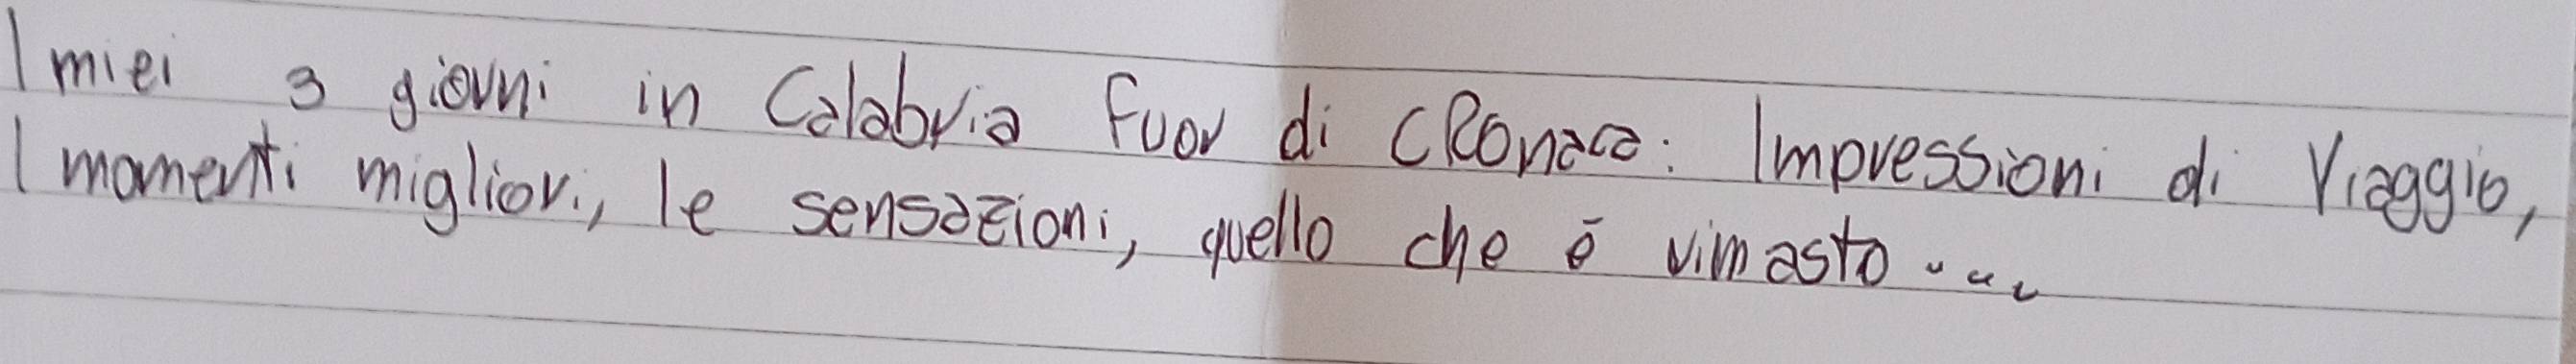 I miei 3 giorni in Calabria fuor di CRonaca: Impressioni di Viaggio,
I momenti migliori, le sensazioni, quello che è rimasto....